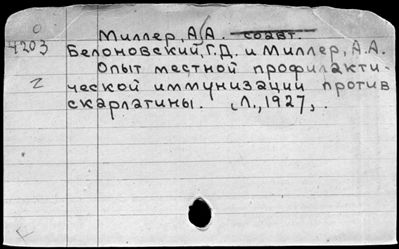 Миллер, А.А. соавт.
4203
Белоновский, Г.Д. и Миллер, А.А.
Опыт местной профилакти-
ческой иммунизации против
скарлатины. Л., 1927, .